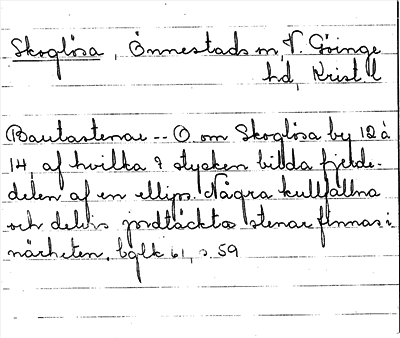 Skoglösa, Önnestads sn, V. Göinge
hd, Krist. l
Bautastenar -- O. om Skoglösa by 12 à
14, af hvilka 9 stycken bilda fjerde-
delen af en ellips. Några kullfallna
och delvis jordtäckta stenar finnas i
närheten. bglk 61, s. 59